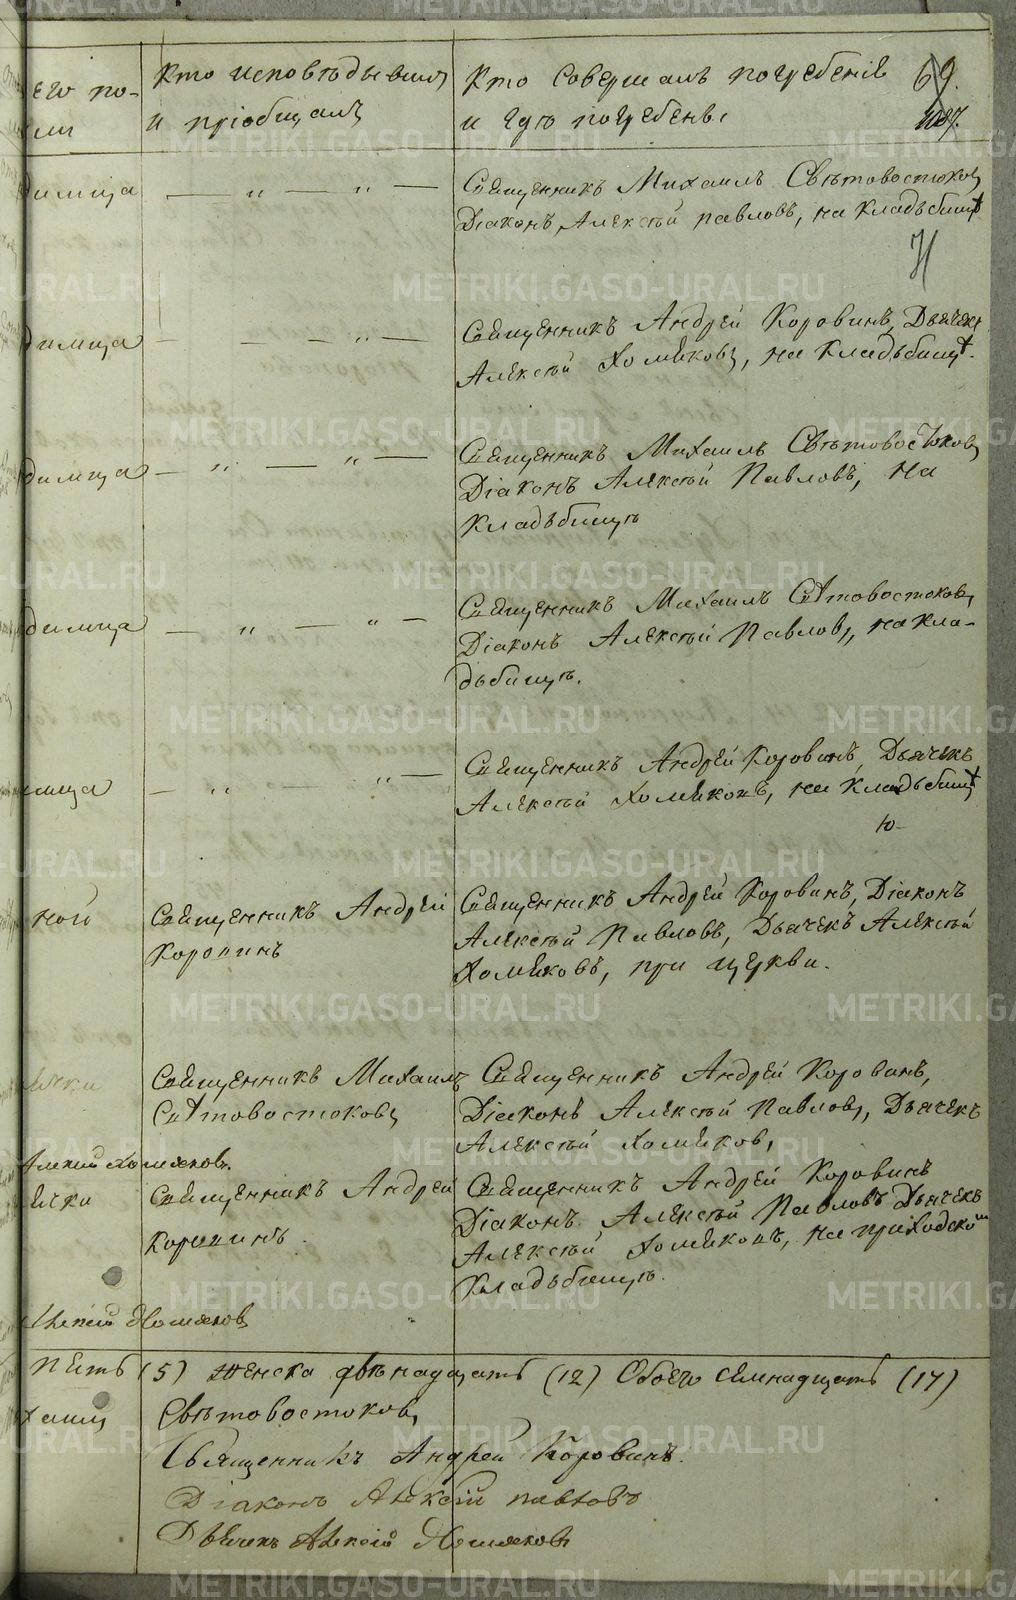 его по-
ли
Кто исповѣдывалъ
и пріобщалъ
Кто совершалъ погребеніе
и гдѣ погребены.
69.
димица — „ — „ —
Священникъ Михаилъ Свѣтовостоковъ
Діаконъ Алексѣй Павловъ, на кладьбищѣ
димица — — — „ —
Священникъ Андрей Коровинъ, Дьячекъ
Алексѣй Хомяковъ, на кладьбищѣ.
димица — „ — „ —
Священникъ Михаилъ Свѣтовостоковъ
Діаконъ Алексѣй Павловъ, на
кладьбищѣ
димица — „ — „ —
Священникъ Михаилъ Свѣтовостоковъ,
Діаконъ Алексѣй Павловъ, на кла-
дьбищѣ.
мица — „ — „ —
Священникъ Андрей Коровинъ, Дьячекъ
Алексѣй Хомяковъ, на кладьбищѣ
ной
Священникъ Андрей
Коровинъ
Священникъ Андрей Коровинъ, Діаконъ
Алексѣй Павловъ, Дьячекъ Алексѣй
Хомяковъ, при церкви.
ячки
Священникъ Михаилъ
Свѣтовостоковъ
Священникъ Андрей Коровинъ,
Діаконъ Алексѣй Павловъ, Дьячекъ
Алексѣй Хомяковъ,
Алексій Хомяковъ.
ячки
Священникъ Андрей
Коровинъ.
Священникъ Андрей Коровинъ
Діаконъ Алексѣй Павловъ Дьячекъ
Алексѣй Хомяковъ, на приходском
кладьбищѣ.
Алексій Хомяковъ
пять (5) женска двѣнадцать (12) Обоего семнадцать (17)
хаилъ Свѣтовостоковъ
Священникъ Андрей Коровинъ.
Діаконъ Алексій Павловъ
Дьячекъ Алексій Хомяковъ
METRIKI.GASO-URAL.RU